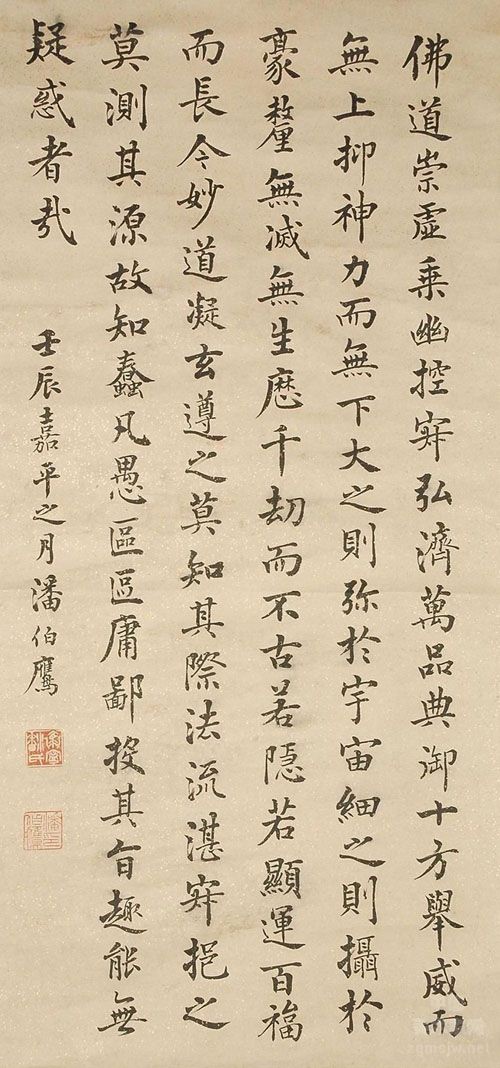 佛道崇虛乘幽控寂弘濟萬品典御十方舉威而
無上抑神力而無下大之則弥於宇宙細之則攝於
豪釐無滅無生歷千劫而不古若隱若顯運百福
而長今妙道凝玄遵之莫知其際法流湛寂挹之
莫測其源故知蠢凡愚區區庸鄙投其旨趣能無
疑惑者哉
壬辰嘉平之月潘伯鷹
zgmsjw.net